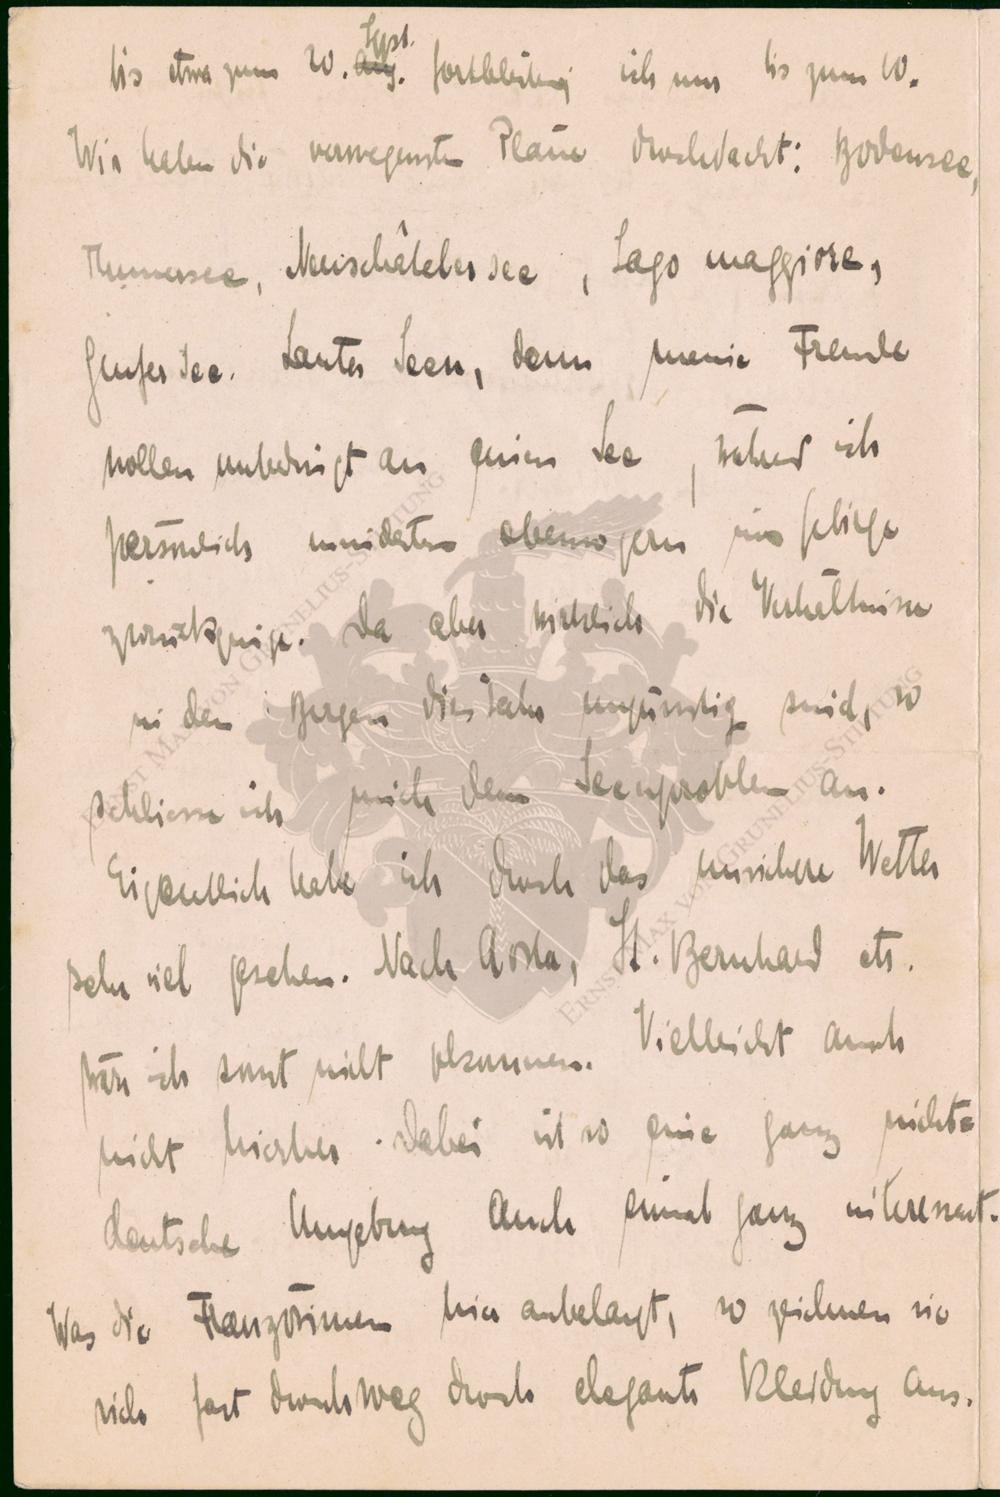 bis etwa zum 20. Sept. Aug. fortbleiben, ich nur bis zum 10.
Wir haben die verwegensten Pläne durchdacht: Bodensee,
Thunersee, Neuschâteler see, Lago maggiore,
Genfer See. Lauter Seen, denn meine Freunde
wollen unbedingt an einen See, während ich
persönlich mindestens ebenso gern ins Gebirge
zurückginge. Da aber wirklich die Verhältnisse
in den Bergen dies Jahr ungünstig sind, so
schliesse ich mich dem Seenproblem an.
Eigentlich habe ich durch das unsichere Wetter
sehr viel gesehen. Nach Aosta, St. Bernhard etc.
wäre ich sonst nicht gekommen. Vielleicht auch
nicht hierher. Dabei ist so eine ganz nicht=
deutsche Umgebung auch einmal ganz interessant.
Was die Französinnen hier anbelangt, so zeichnen sie
sich fast durchweg durch elegante Kleidung aus.
ERNST MAX VON GRUNELIUS-STIFTUNG
ERNST MAX VON GRUNELIUS-STIFTUNG